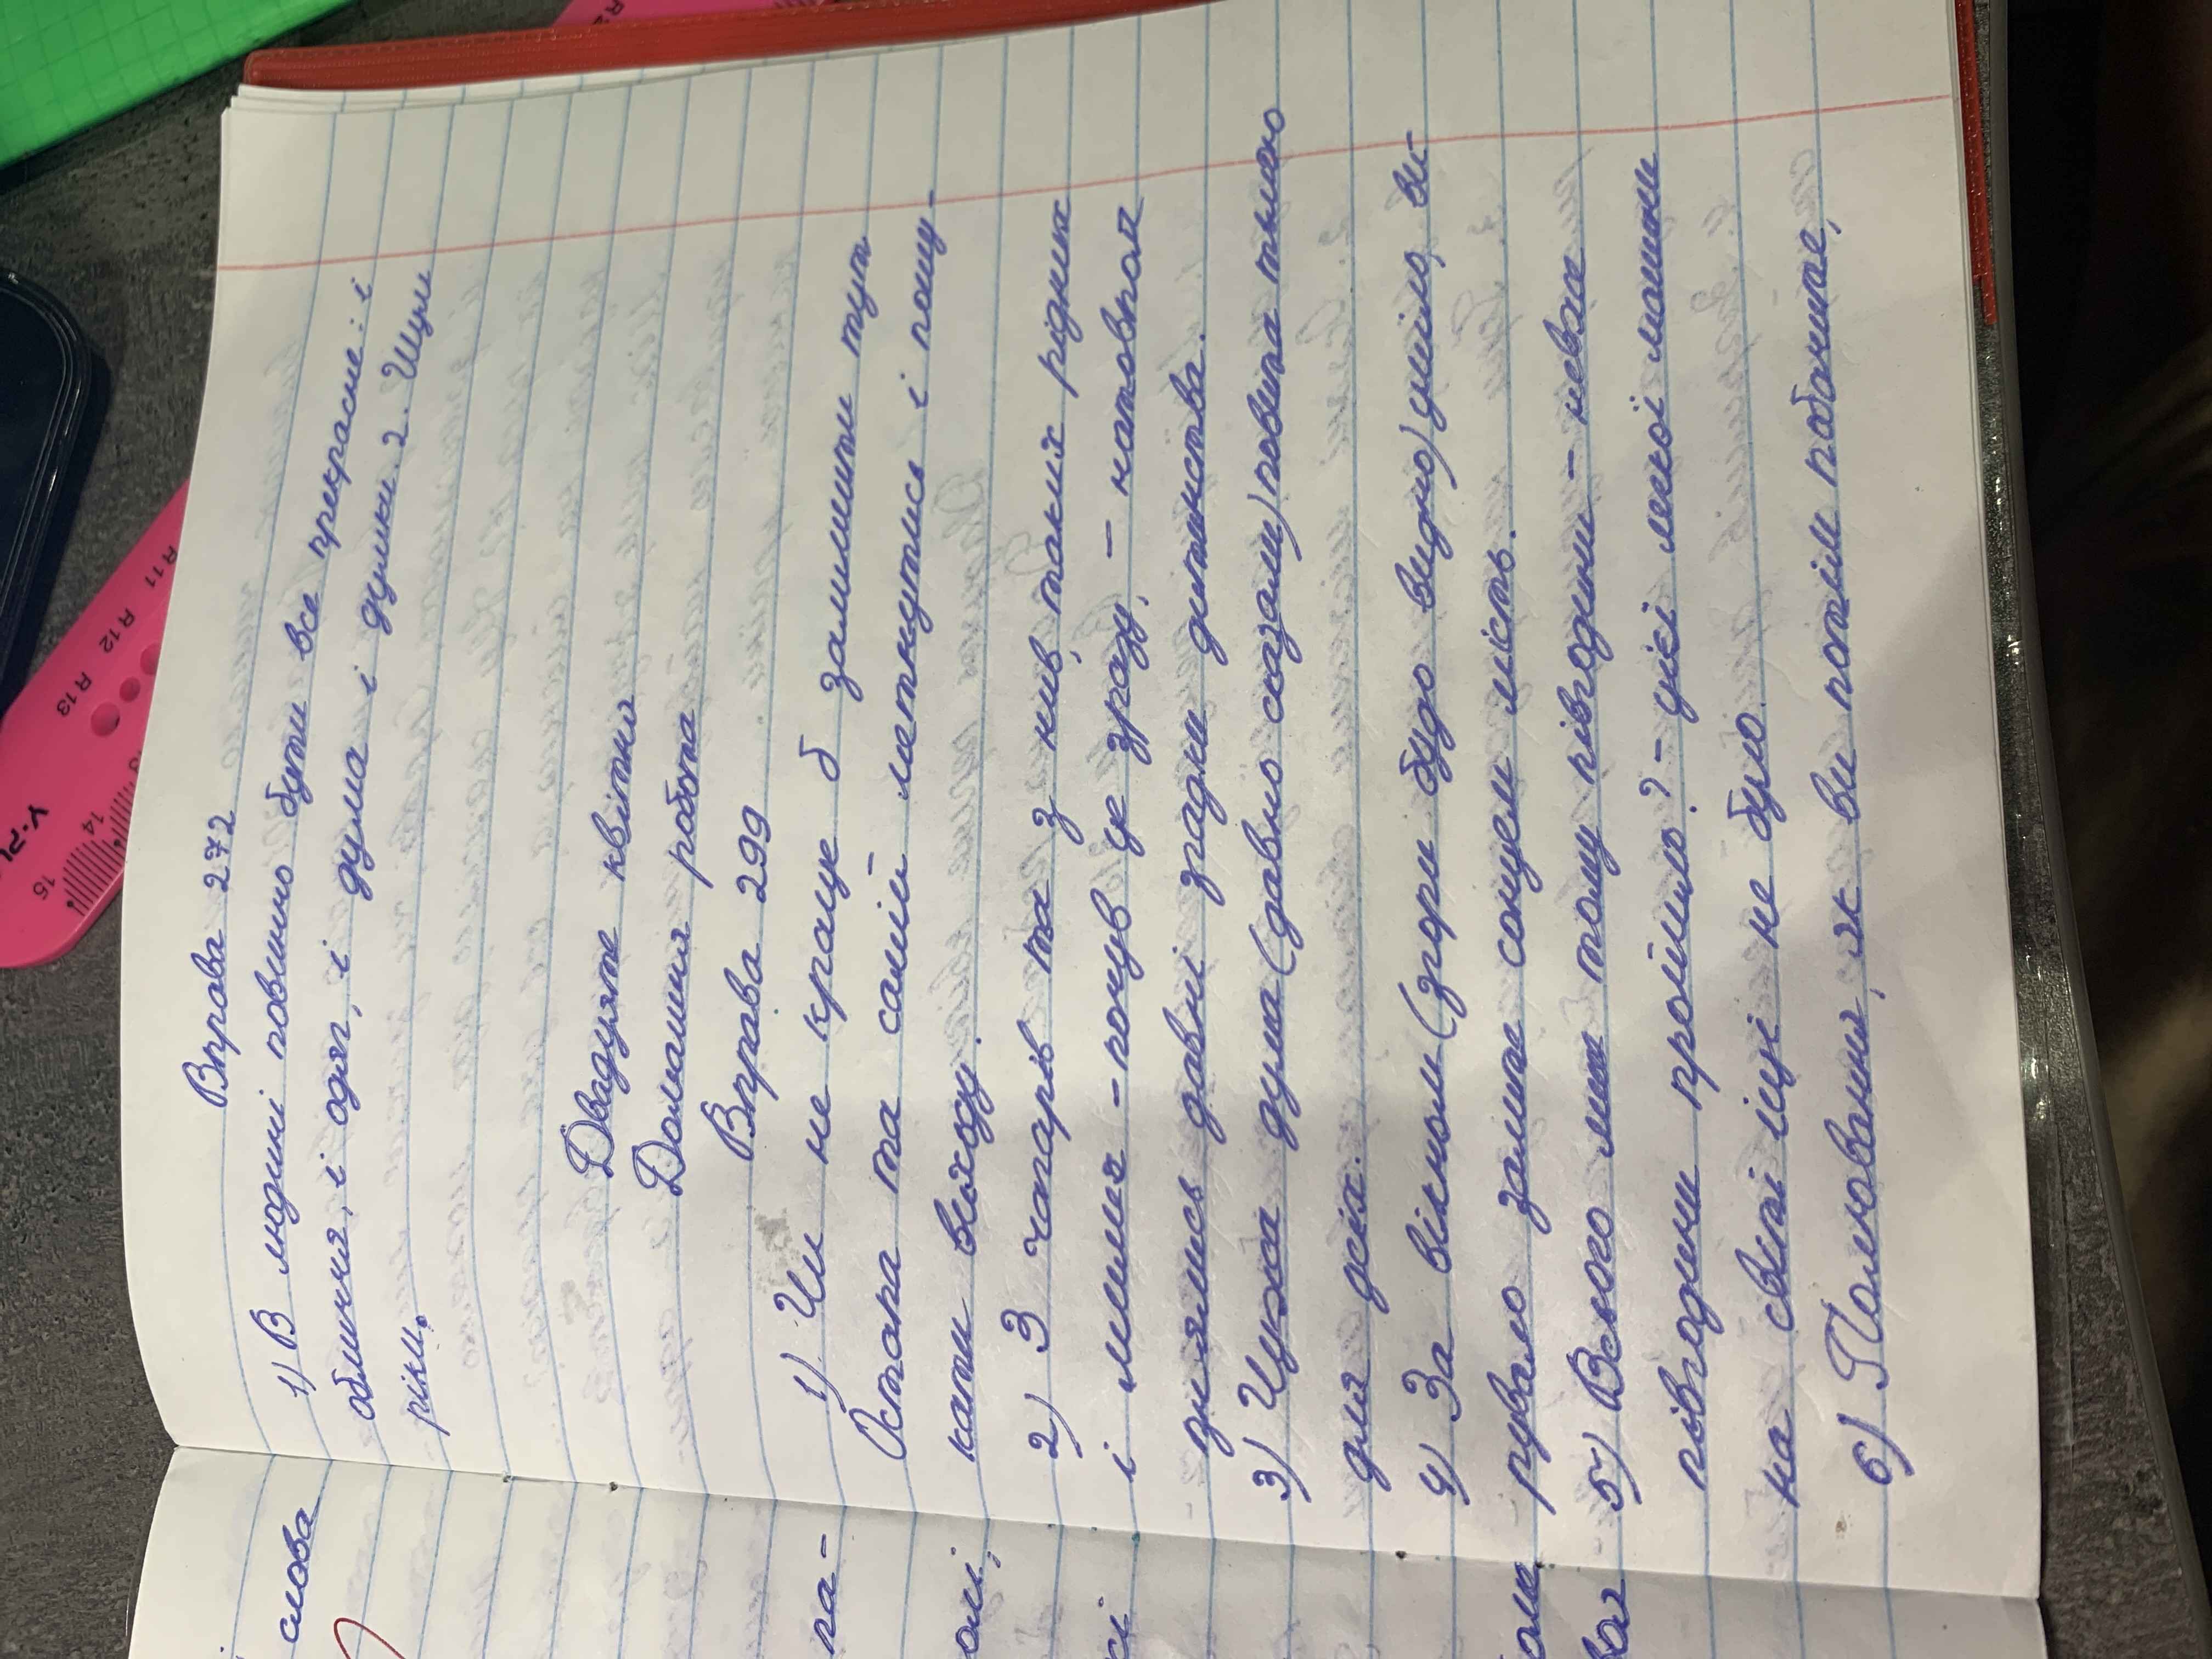 Вправа 272
1) В людині повинно бути все прекрасне: і
обличчя, і одяг, і душа і думки. 2. Шуми
ріки.
Двадцяте квітня
Домашня робота
Вправа 299
1) Чи не краще б залишити тут
Остапа та самій метнутись і пошу-
кати виходу.
2) З чагарів та з нив, таких рідних
і лише - почув це зразу, - натовпом
знялись давні згадки дитинства.
3) Чужа душа (давно сказали) повита тьмою
для усіх.
4) За вікном (згори було видно) уміло, ви-
рувало залите сонцем місто.
5) Всього лиш тому півгодини - невже
півгодини пройшло? - цієї легкої машини
на світі іще не було.
6) Полювання, як ви потім побачите,
слова
па-
олі,
сі